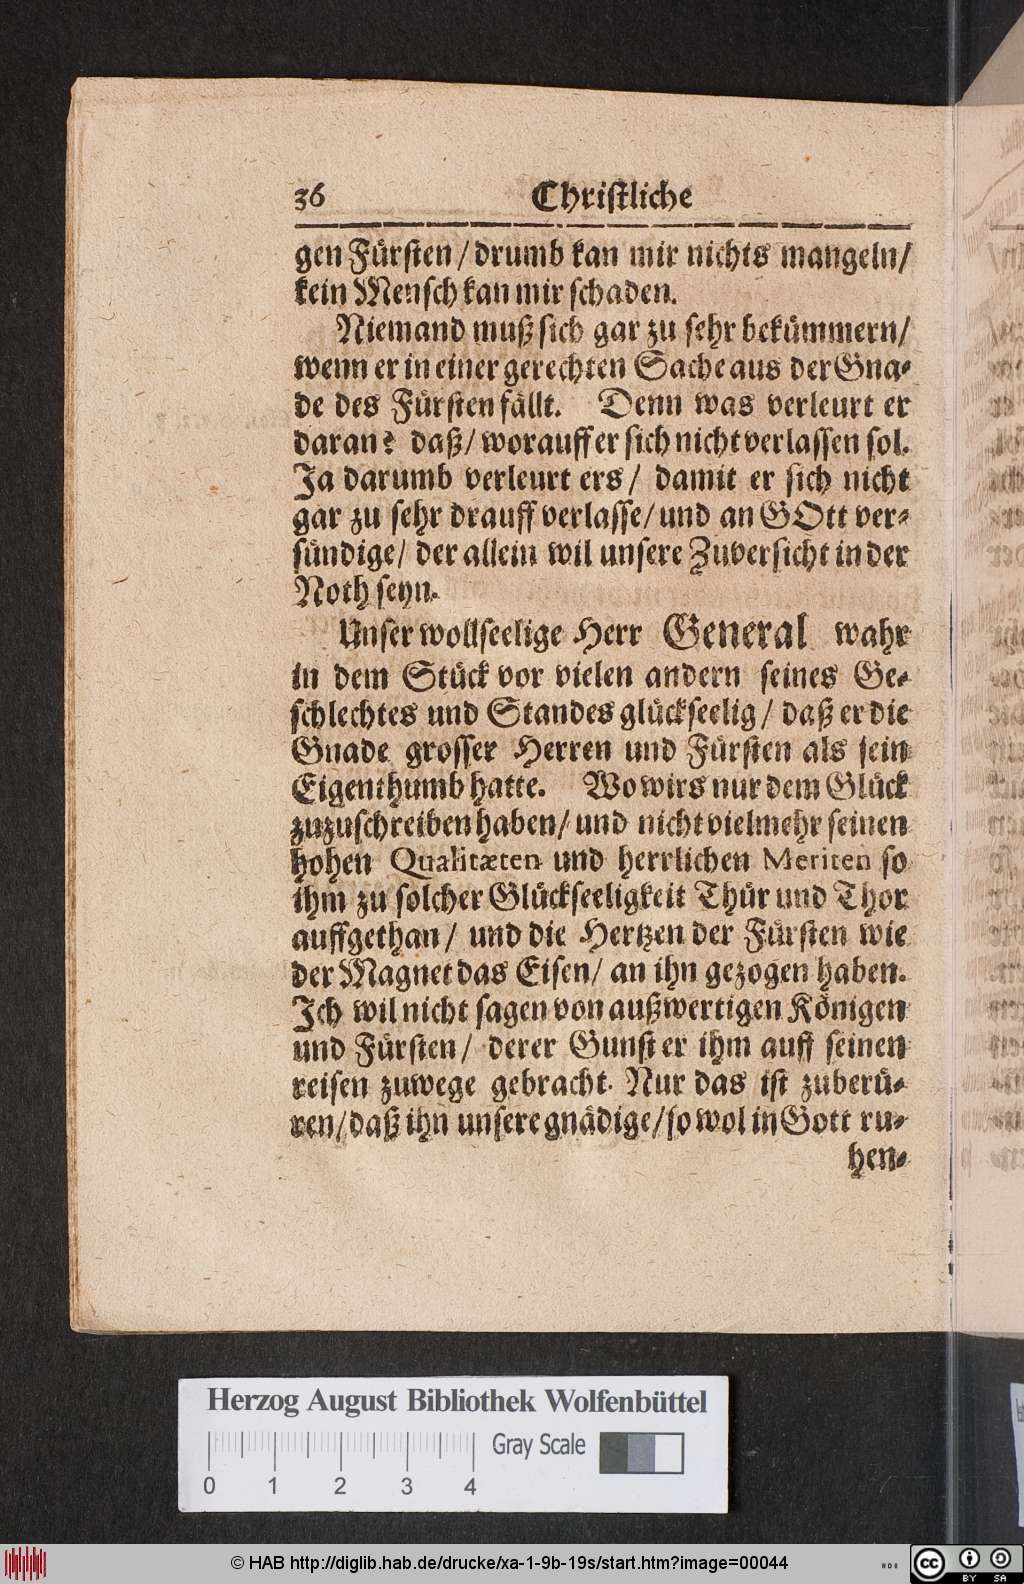 36 Chriſtliche
gen Fürſten / drumb kan mir nichts mangeln /
kein Menſch kan mir ſchaden.
Niemand muß ſich gar zu ſehr bekümmern /
wenn er in einer gerechten Sache aus der Gna-
de des Fürſten fällt. Denn was verleurt er
daran? daß / worauff er ſich nicht verlaſſen ſol.
Ja darumb verleurt ers / damit er ſich nicht
gar zu ſehr drauff verlaſſe / und an GOtt ver-
ſündige / der allein wil unſere Zuverſicht in der
Noth ſeyn.
Unſer wollſeelige Herr General wahr
in dem Stück vor vielen andern ſeines Ge-
ſchlechtes und Standes glückſeelig / daß er die
Gnade groſſer Herren und Fürſten als ſein
Eigenthumb hatte. Wo wirs nur dem Glück
zuzuſchreiben haben / und nicht vielmehr ſeinen
hohen Qualitæten und herrlichen Meriten ſo
ihm zu ſolcher Glückſeeligkeit Thür und Thor
auffgethan / und die Hertzen der Fürſten wie
der Magnet das Eiſen / an ihn gezogen haben.
Ich wil nicht ſagen von außwertigen Königen
und Fürſten / derer Gunſt er ihm auff ſeinen
reiſen zuwege gebracht. Nur das iſt zuberü-
ren / daß ihn unſere gnädige / ſo wol in Gott ru-
hen-
Herzog August Bibliothek Wolfenbüttel
Gray Scale
0 1 2 3 4
© HAB http://diglib.hab.de/drucke/xa-1-9b-19s/start.htm?image=00044
cc BY SA